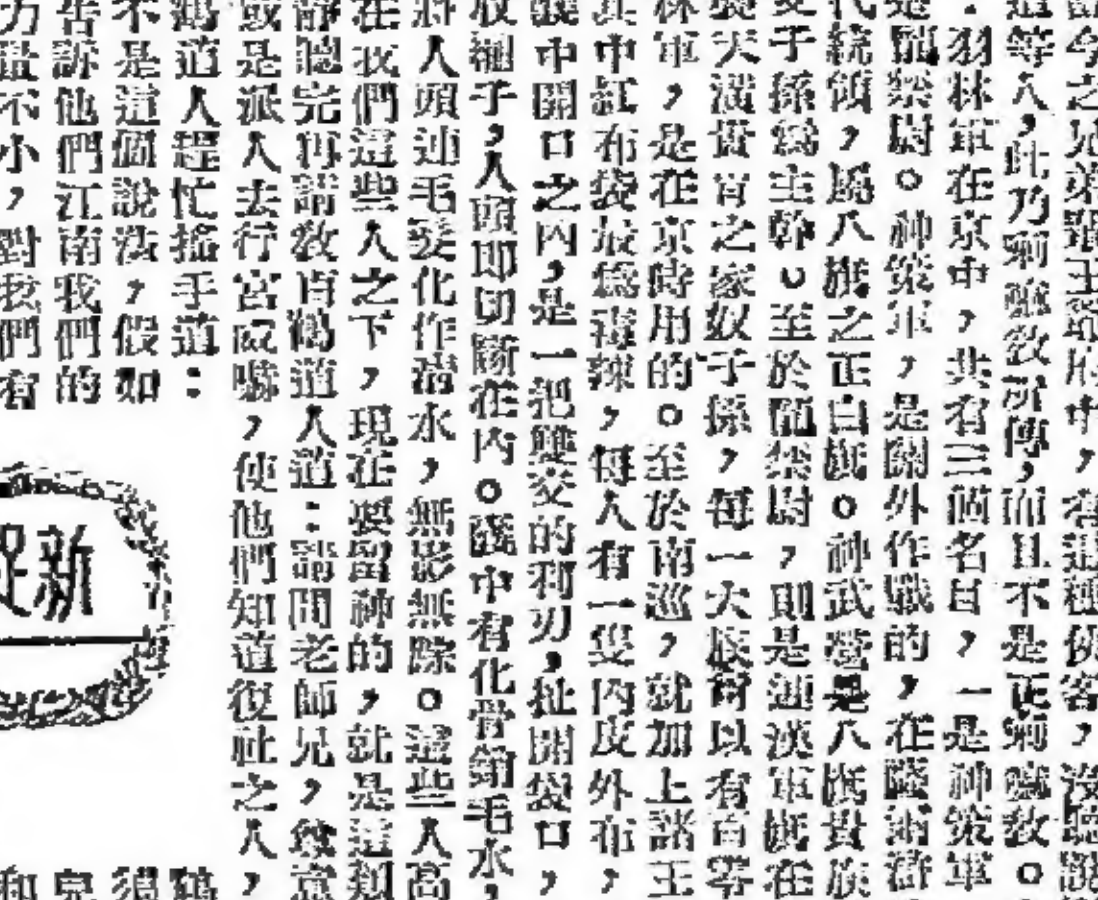 當今之兄弟親王等府中，有這種俠客，沒聽說
這等人，此乃喇嘛教所傳，而且不是正喇嘛教。
：羽林軍在京中，共有三個名目，一是神策軍
是驍禁尉。神策軍，是關外作戰的，在
代統領，屬八旗之正白旗。神武營是八旗貴族
子孫為主幹。至於驍禁尉，則是通漢軍旗在
天潢貴胄之家奴子孫，每一大族可以有百零
林軍，是在京時用的。至於南巡，就加上諸王
其中紅布袋最為毒辣，每人有一隻內皮外布，
袋中開口之內，是一把雙交的利刃，扯開袋口，
收繩子，人頭即切斷在內。袋中有化骨銷毛水，
將人頭連毛髮化作清水，無影無踪。這些人高
在我們這些人之下，現在要留神的，就是這類
靜聽完再請教肖鶴道人道：請問老師兄，尊意
或是派人去行宮威嚇，使他們知道復社之人，
鶴道人趕忙搖手道：
不是這個說法，假如
告訴他們江南我們的
力量不小，對我們有
新捉
鶴
須
兒
和